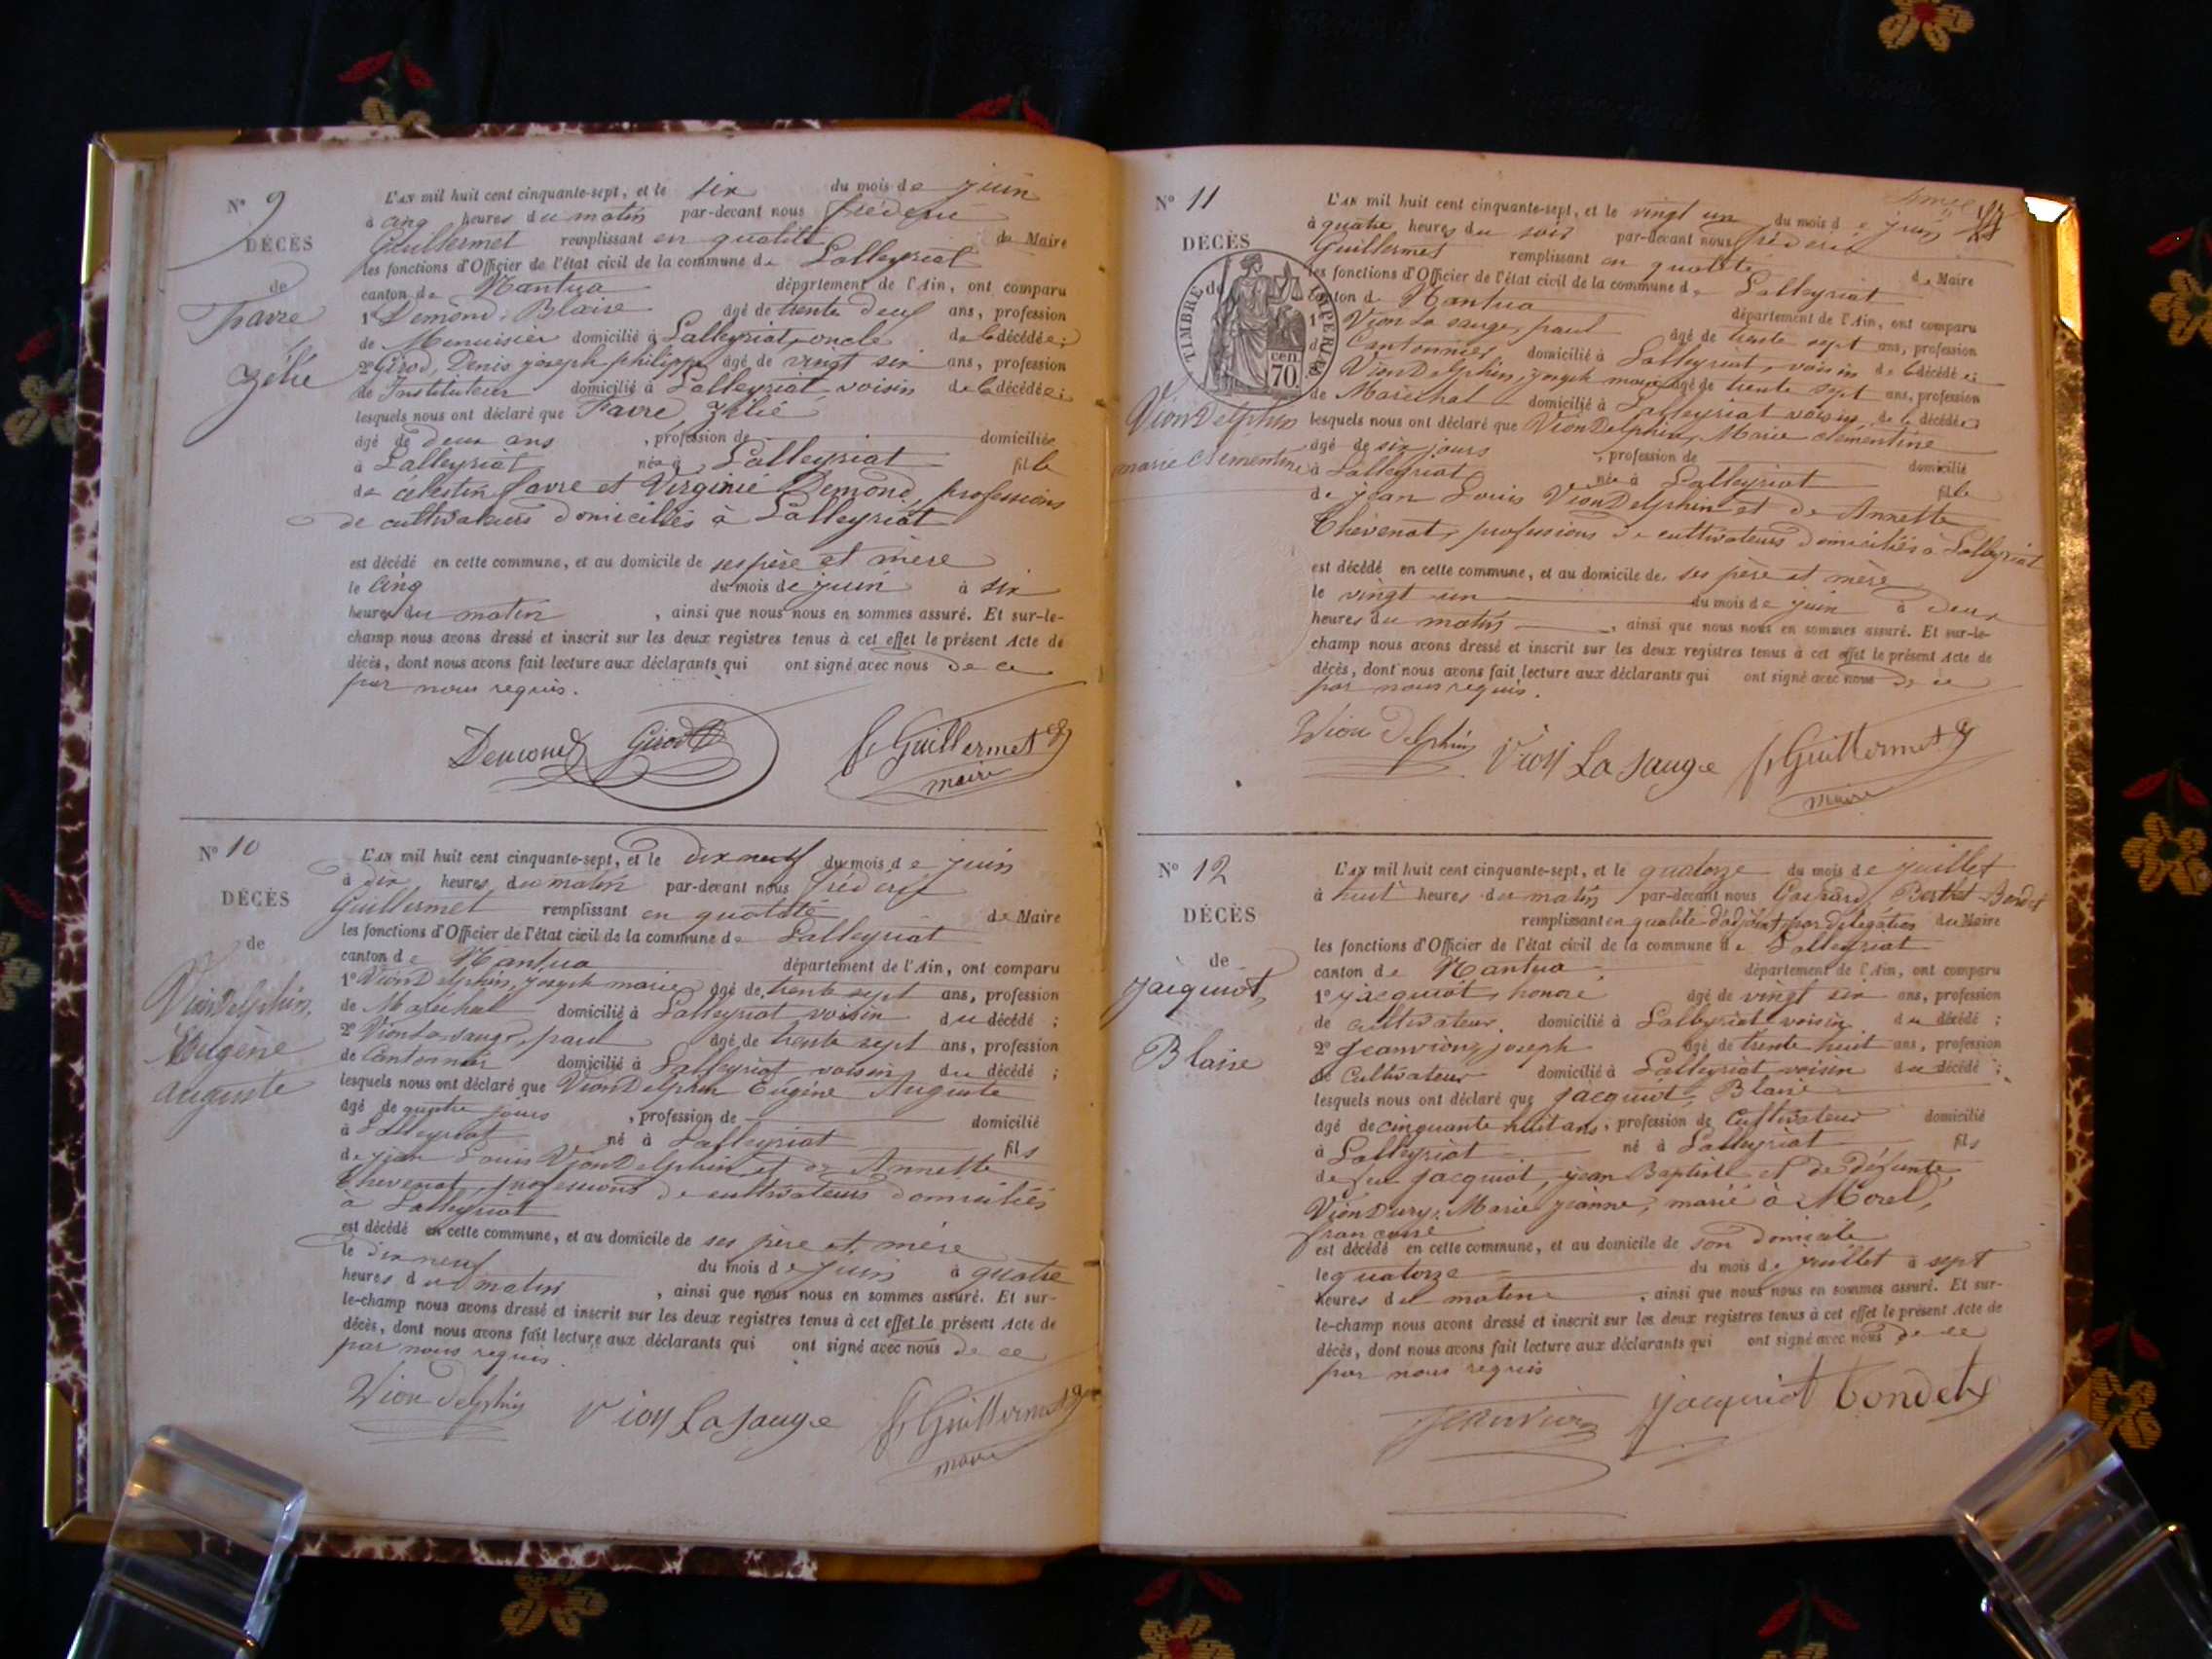 N° 9
DÉCÈS
de
Favre
Zélie
L'AN mil huit cent cinquante-sept, et le six du mois de juin
à cinq heures du matin par-devant nous frédéric
Guillermet remplissant en qualité de Maire
les fonctions d'Officier de l'état civil de la commune de Lalleyriat
canton de Nantua département de l'Ain, ont comparu
1° Demond, Blaise âgé de trente deux ans, profession
de Menuisier domicilié à Lalleyriat, oncle de la décédée;
2° Girod, Denis joseph philippe âgé de vingt six ans, profession
de Instituteur domicilié à Lalleyriat, voisin de la décédée;
lesquels nous ont déclaré que Favre, Zélie
âgé de deux ans, profession de domiciliée
à Lalleyriat née à Lalleyriat fille
de célestin favre et Virginie Demond, professions
de cultivateurs domiciliés à Lalleyriat
est décédé en cette commune, et au domicile de ses père et mère
le cinq du mois de juin à six
heures du matin, ainsi que nous nous en sommes assuré. Et sur-le-
champ nous avons dressé et inscrit sur les deux registres tenus à cet effet le présent Acte de
décès, dont nous avons fait lecture aux déclarants qui ont signé avec nous de ce
par nous requis.
Demond Girod f. Guillermet
maire
N° 10
DÉCÈS
de
VionDelphin,
Eugène
auguste
L'AN mil huit cent cinquante-sept, et le dix neuf du mois de juin
à dix heures du matin par-devant nous frédéric
Guillermet remplissant en qualité de Maire
les fonctions d'Officier de l'état civil de la commune de Lalleyriat
canton de Nantua département de l'Ain, ont comparu
1° VionDelphin, joseph marie âgé de trente sept ans, profession
de Maréchal domicilié à Lalleyriat voisin du décédé;
2° Vion La sauge, paul âgé de trente sept ans, profession
de Cantonnier domicilié à Lalleyriat voisin du décédé;
lesquels nous ont déclaré que VionDelphin Eugène Auguste
âgé de quatre jours, profession de domicilié
à Lalleyriat né à Lalleyriat fils
de jean Louis VionDelphin et de Annette
Chevenat, professions de cultivateurs domiciliés
à Lalleyriat
est décédé en cette commune, et au domicile de ses père et mère
le dix neuf du mois de juin à quatre
heures du matin, ainsi que nous nous en sommes assuré. Et sur-
le-champ nous avons dressé et inscrit sur les deux registres tenus à cet effet le présent Acte de
décès, dont nous avons fait lecture aux déclarants qui ont signé avec nous de ce
par nous requis.
Vion Delphin Vion La Sauge f. Guillermet
maire
N° 11
DÉCÈS
de
TIMBRE IMPÉRIAL
cen.
70.
VionDelphin
marie Clémentine
L'AN mil huit cent cinquante-sept, et le vingt un du mois de juin
à quatre heures du soir par-devant nous frédéric
Guillermet remplissant en qualité de Maire
les fonctions d'Officier de l'état civil de la commune de Lalleyriat
canton de Nantua département de l'Ain, ont comparu
1° Vion La sauge, paul âgé de trente sept ans, profession
de Cantonnier domicilié à Lalleyriat, voisin de la décédée;
VionDelphin, joseph marie âgé de trente sept ans, profession
de Maréchal domicilié à Lalleyriat voisin de la décédée
lesquels nous ont déclaré que VionDelphin, Marie clémentine
âgé de six jours, profession de domicilié
à Lalleyriat née à Lalleyriat fille
de jean Louis VionDelphin et de Annette
Chevenat, professions de cultivateurs domiciliés à Lalleyriat
est décédé en cette commune, et au domicile de ses père et mère
le vingt un du mois de juin à deux
heures du matin, ainsi que nous nous en sommes assuré. Et sur-le-
champ nous avons dressé et inscrit sur les deux registres tenus à cet effet le présent Acte de
décès, dont nous avons fait lecture aux déclarants qui ont signé avec nous de ce
par nous requis.
Vion Delphin Vion La Sauge f. Guillermet
maire
N° 12
DÉCÈS
de
jacquiot,
Blaise
L'AN mil huit cent cinquante-sept, et le quatorze du mois de juillet
à huit heures du matin par-devant nous Gaspard, Berthet-Bondet
remplissant en qualité d'adjoint par délégation du Maire
les fonctions d'Officier de l'état civil de la commune de Lalleyriat
canton de Nantua département de l'Ain, ont comparu
1° jacquiot, honoré âgé de vingt six ans, profession
de cultivateur domicilié à Lalleyriat voisin du décédé;
2° Jeanvion, joseph âgé de trente huit ans, profession
de Cultivateur domicilié à Lalleyriat voisin du décédé;
lesquels nous ont déclaré que jacquiot, Blaise
âgé de cinquante huit ans, profession de Cultivateur domicilié
à Lalleyriat né à Lalleyriat fils
de feu jacquiot, jean Baptiste et de défunte
VionDury, Marie jeanne, marié à Morel,
françoise
est décédé en cette commune, et au domicile de son domicile
le quatorze du mois de juillet à sept
heures du matin, ainsi que nous nous en sommes assuré. Et sur-
le-champ nous avons dressé et inscrit sur les deux registres tenus à cet effet le présent Acte de
décès, dont nous avons fait lecture aux déclarants qui ont signé avec nous de ce
par nous requis
Jeanvion jacquiot bondet